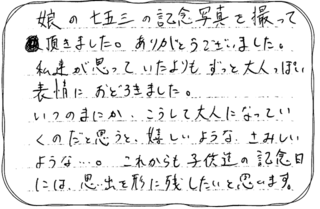 娘の七五三の記念写真を撮って
頂きました。ありがとうございました。
私達が思っていたよりも ずっと大人っぽい
表情に おどろきました。
いつのまにか、こうして大人になってい
くのだと思うと、嬉しいような さみしい
ような…。これからも 子供達の記念日
には、思い出を形に残したいと思います。